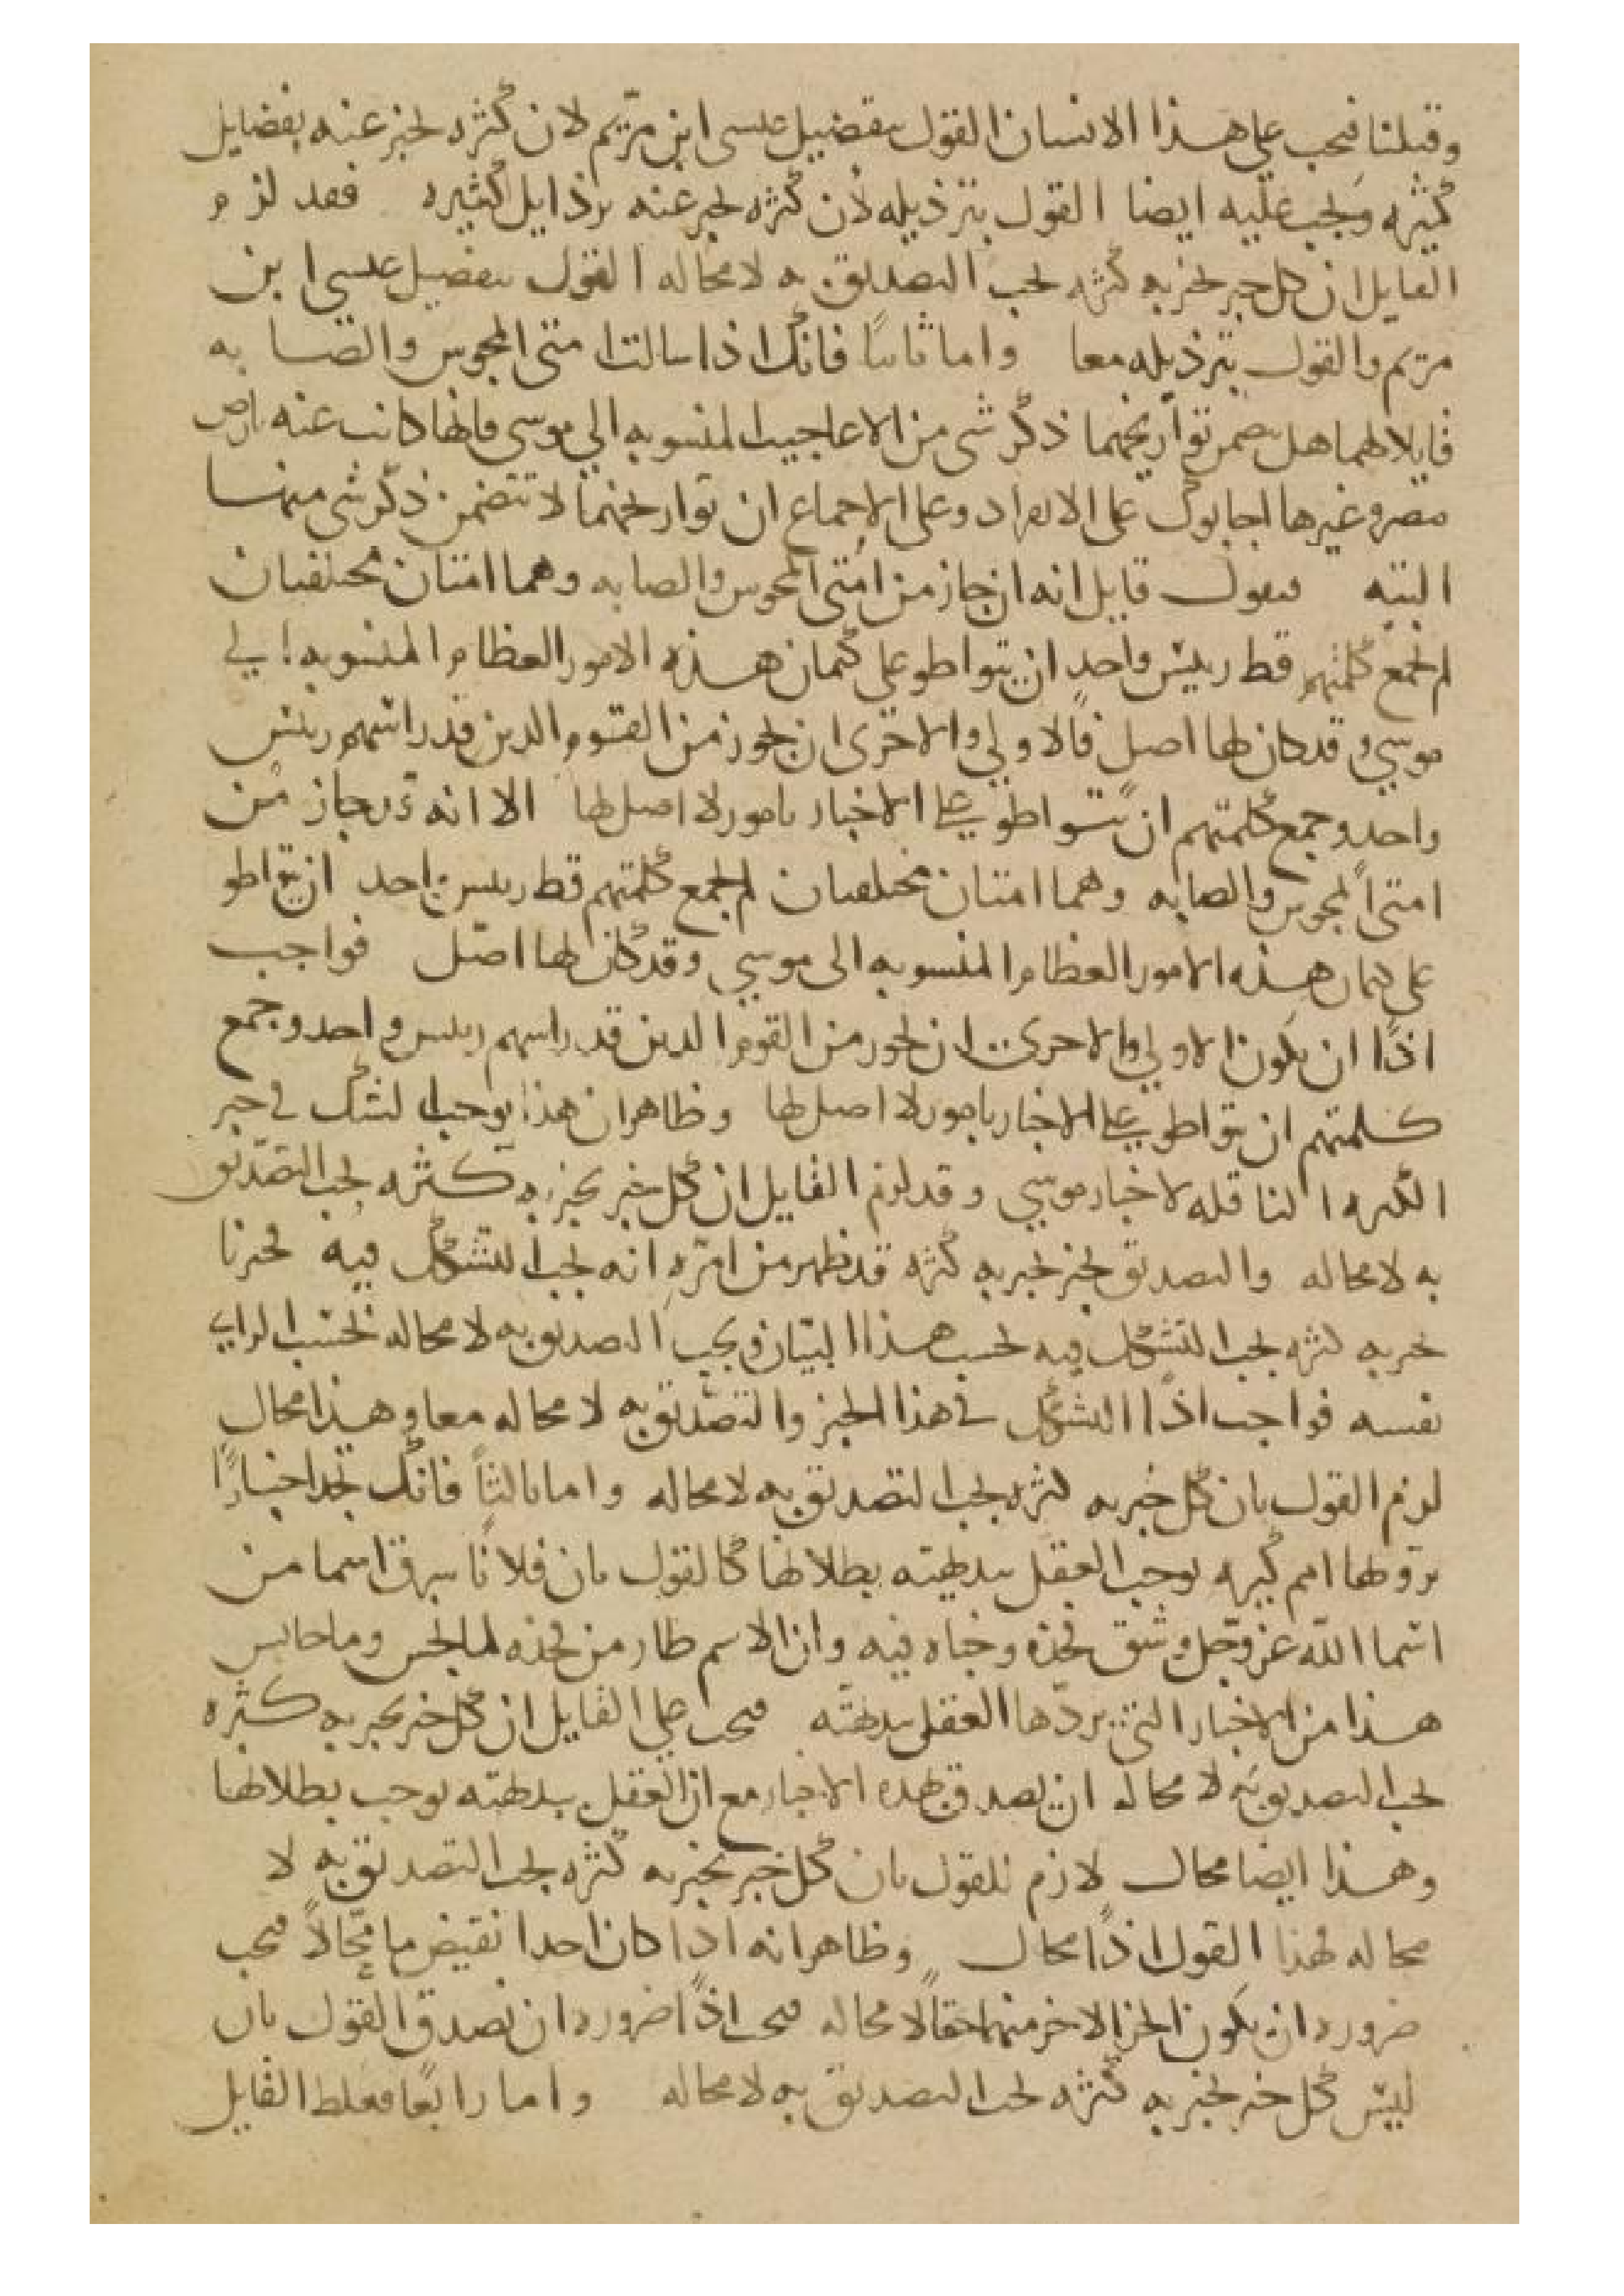 وقبلنا فيجب على هذا الانسان القول بتفضيل عيسى ابن مريم لان كثره تخبر عنه بفضايل
كثيره ويجب عليه ايضا القول بترذيله لان كثره تخبر عنه برذايل كثيره فقد لزم
القايل ان كل خبر تخبر به كثره يجب التصديق به لا محاله القول بتفضيل عيسى ابن
مريم والقول بترذيله معا واما ثانيا فانك اذا سالت امتي المجوس والصابه
قايلا لهما هل تتضمن تواريخهما ذكر شي من الاعاجيب المنسوبه الي موسى فانها كانت عنه بارض
مصر وغيرها اجابوك على الانفراد وعلى الاجماع ان تواريخهما لا تتضمن ذكر شي منها
البته فيقول قايل انه ان جاز من امتي المجوس والصابه وهما امتان مختلفتان
لم تجمع كلمتهم قط رييس واحد ان يتواطو على كتمان هذه الامور العظام المنسوبه الي
موسي وقد كان لها اصل فالاولي والاحرى ان يجوز من القوم الدين قد راسهم رييس
واحد وجمع كلمتهم ان يتواطو علي الاخبار بامور لا اصل لها الا انه قد جاز من
امتي المجوس والصابه وهما امتان مختلفتان لم تجمع كلمتهم قط رييس واحد ان يتواطو
على كتمان هذه الامور العظام المنسوبه الى موسي وقد كان لها اصل فواجب
اذًا ان يكون الاولي والاحرى ان يجوز من القوم الدين قد راسهم رييس واحد وجمع
كلمتهم ان يتواطو علي الاخبار بامور لا اصل لها وظاهر ان هذا يوجب الشك في خبر
الكثره الناقله لاخبار موسي وقد لزم القايل ان كل خبر يخبر به كثره يجب التصديق
به لا محاله والتصديق بخبر تخبر به كثره قد ظهر من امره انه يجب التشكك فيه فخبرنا
خبر به كثره يجب التشكك فيه بحسب هذا البيان ويجب التصديق به لا محاله بحسب الراي
نفسه فواجب اذًا التشكك في هذا الخبر والتصديق به لا محاله معا وهذا محال
لزم القول بان كل خبر به كثره يجب التصديق به لا محاله واما ثالثاً فانك تجد اخبارًا
ترويها امم كبيره يوجب العقل ببديهته بطلانها كالقول بان فلانًا سرق اسما من
اسما الله عز وجل وشق فخذه وخباه فيه وان الاسم طار من فخذه وما جانس
هذا من الاخبار التي يردّها العقل ببديهته فيجب علي القايل ان كل خبر يخبر به كثره
يجب التصديق به لا محاله ان يصدق بهذه الاخبار مع ان العقل ببديهته يوجب بطلانها
وهذا ايضا محال لازم للقول بان كل خبر يخبر به كثره يجب التصديق به لا
محاله فهذا القول اذًا محال وظاهر انه اذا كان احد نقيضي ما محالاً فيجب
ضروره ان يكون الجز الاخر منهما حقاً لا محاله فيجب اذًا ضروره ان نصدق القول بان
ليس كل خبر يخبر به كثره يجب التصديق به لا محاله واما رابعًا فغلط القايل